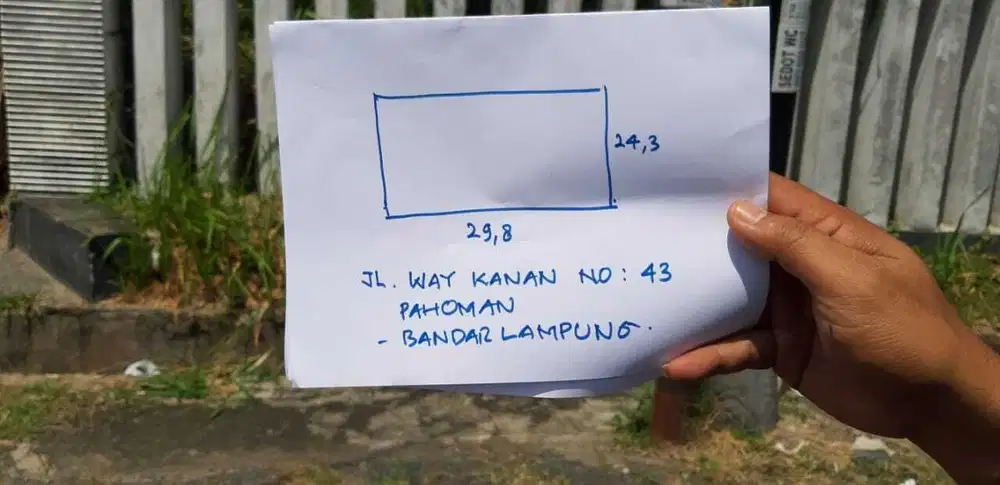 SEDOT WC
24,3
29,8
JL. WAY KANAN NO: 43
PAHOMAN
- BANDAR LAMPUNG.